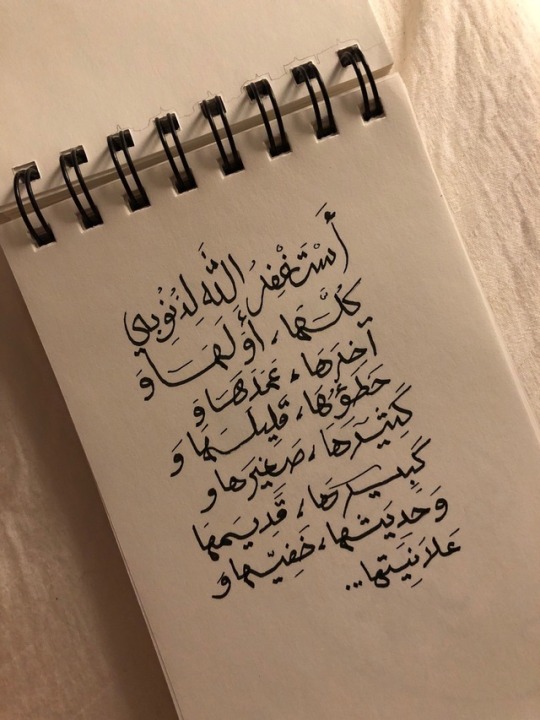 أَسْتَغْفِرُ اللَّهَ لِذُنُوبِي
كُلَّهَا، أَوَلَهَا وَ
آخِرَهَا، عَمَدَهَا وَ
خَطَؤُهَا، قَلِيلَهَا وَ
كَثِيرَهَا، صَغِيرَها و
كَبِيرَها، قَدِيمَهَا
وَحَدِيثَهَا، خَفِيّهَا وَ
عَلَانِيَتَها...